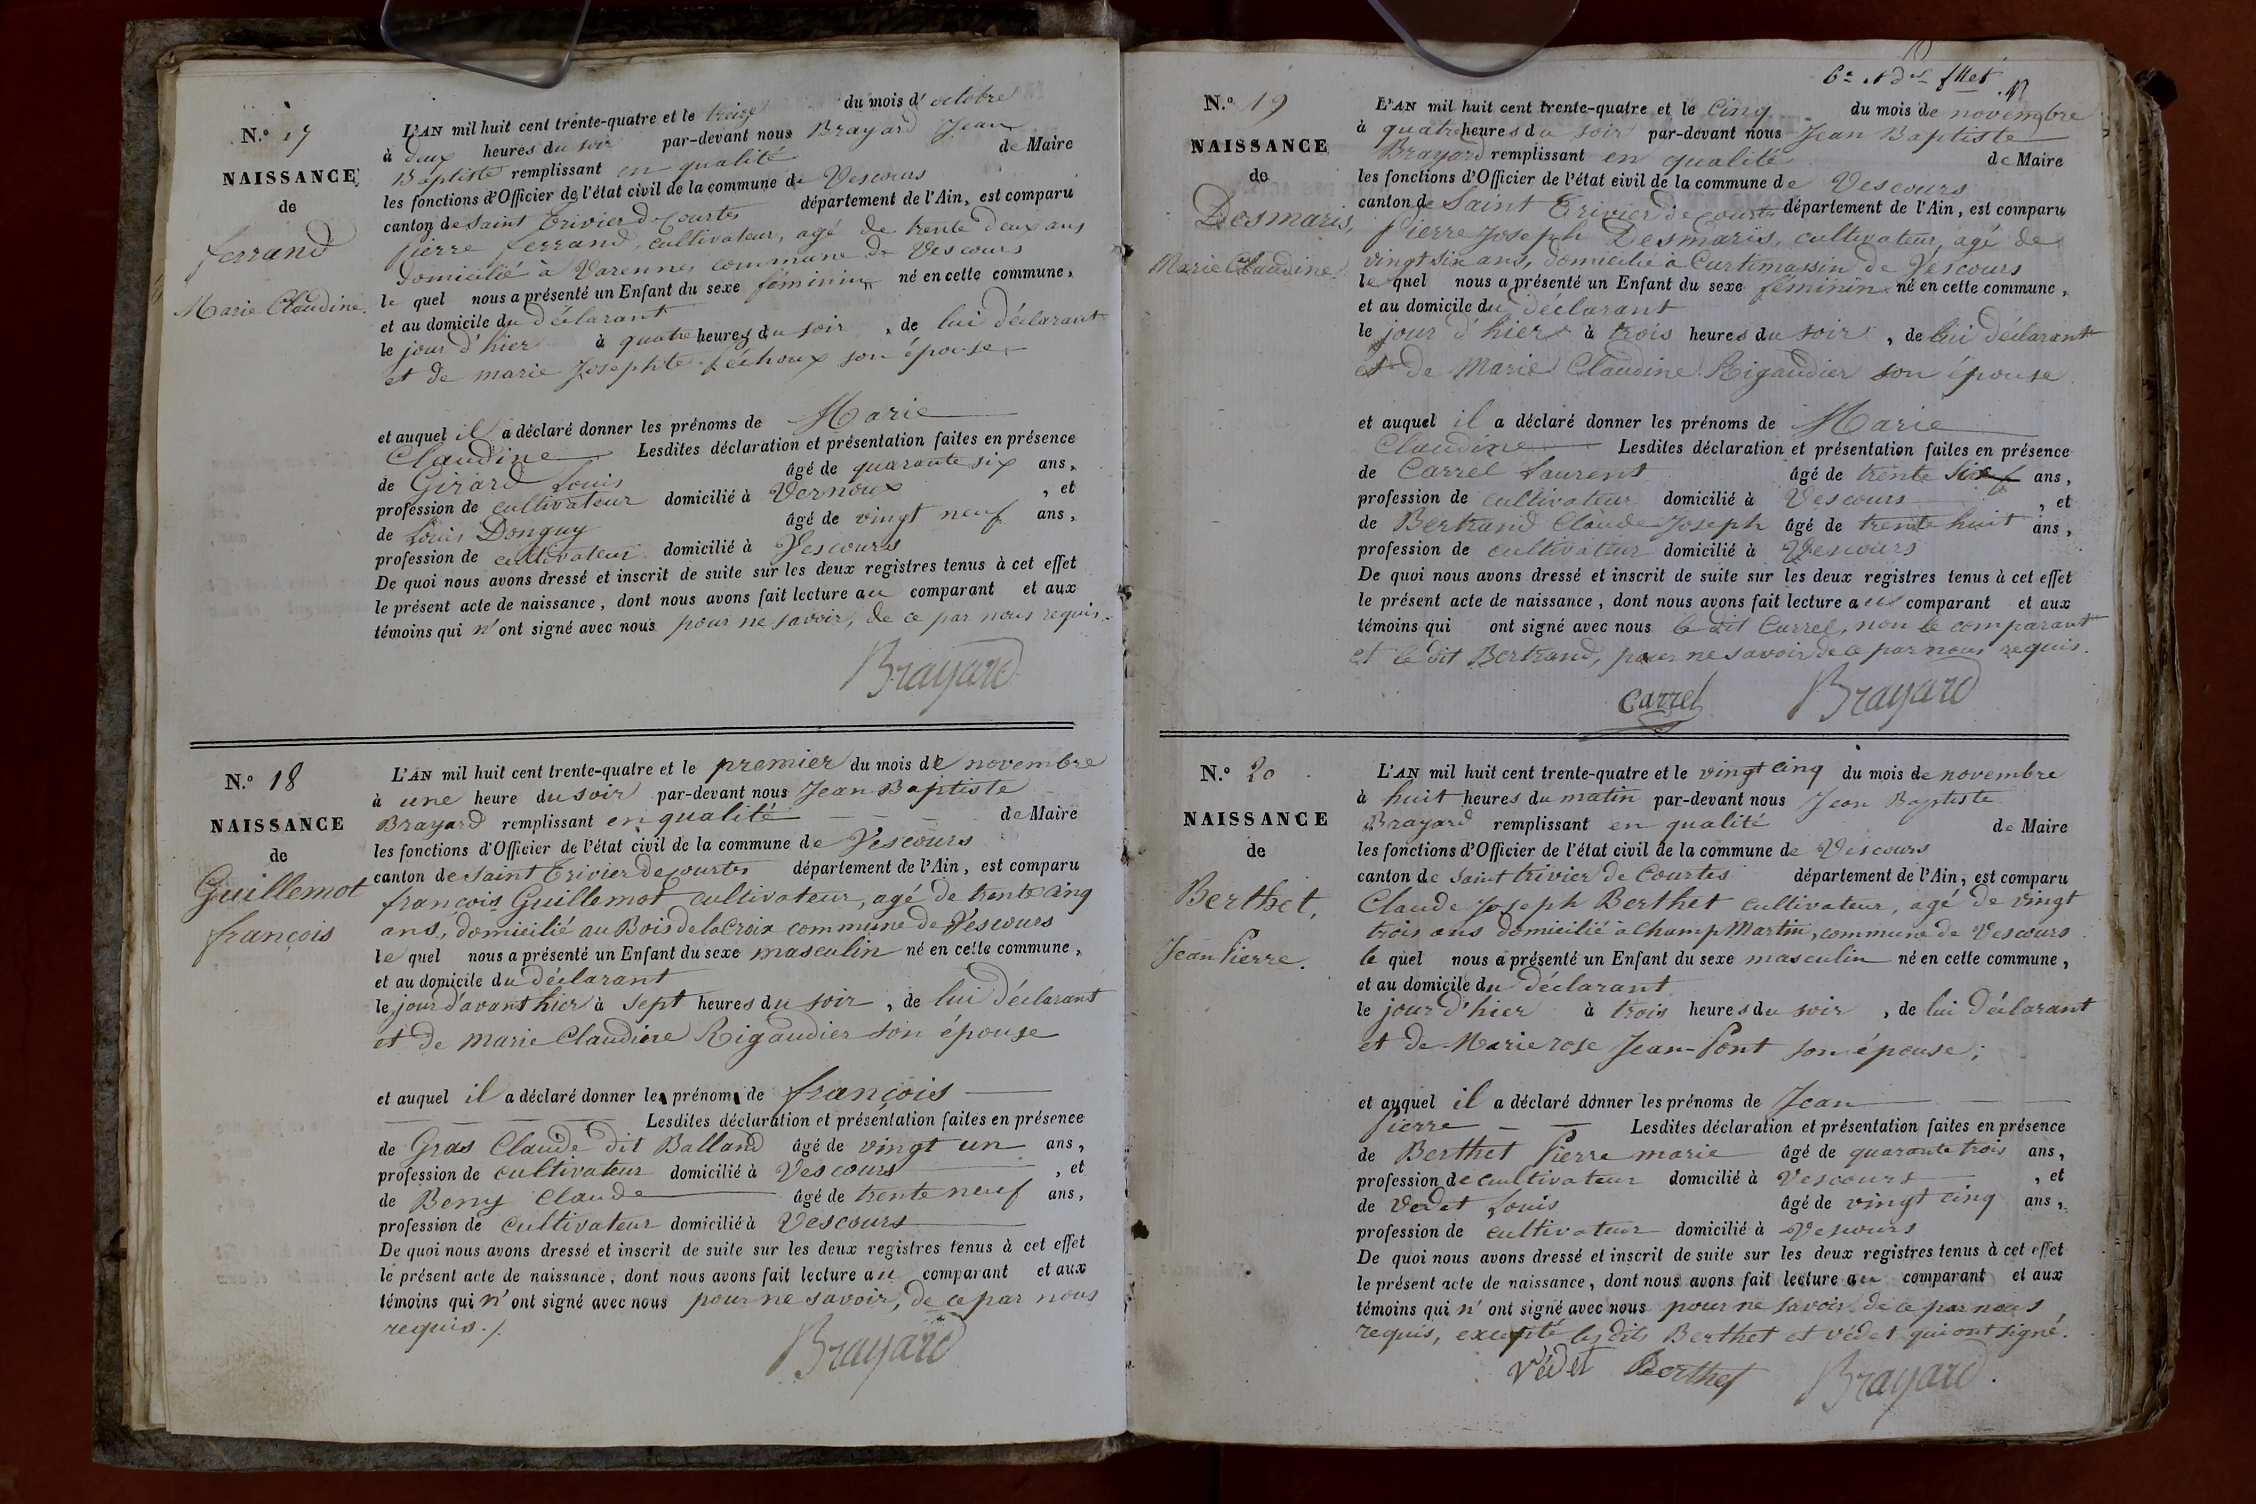 N.º 17
NAISSANCE
de
ferrand
Marie Claudine.
L'AN mil huit cent trente-quatre et le treize du mois d' octobre
à deux heures du soir par-devant nous Brayard Jean
Baptiste remplissant en qualité de Maire
les fonctions d'Officier de l'état civil de la commune de Vescours
canton de Saint Trivier de Courtes département de l'Ain, est comparu
pierre ferrand, cultivateur, agé de trente deux ans
domicilié à Varennes commune de Vescours
le quel nous a présenté un Enfant du sexe féminin né en cette commune,
et au domicile du déclarant
le jour d'hier à quatre heures du soir, de lui déclarant
et de marie Josephte péchoux son épouse
et auquel il a déclaré donner les prénoms de Marie
Claudine Lesdites déclaration et présentation faites en présence
de Girard Louis âgé de quarante six ans,
profession de cultivateur domicilié à Vernoux, et
de Louis Donguy âgé de vingt neuf ans,
profession de cultivateur domicilié à Vescours
De quoi nous avons dressé et inscrit de suite sur les deux registres tenus à cet effet
le présent acte de naissance, dont nous avons fait lecture au comparant et aux
témoins qui n' ont signé avec nous pour ne savoir, de ce par nous requis.
Brayard
N.º 18
NAISSANCE
de
Guillemot
françois
L'AN mil huit cent trente-quatre et le premier du mois de novembre
à une heure du soir par-devant nous Jean Baptiste
Brayard remplissant en qualité de Maire
les fonctions d'Officier de l'état civil de la commune de Vescours
canton de Saint Trivier de Courtes département de l'Ain, est comparu
françois Guillemot cultivateur, agé de trente cinq
ans, domicilié au Bois de la Croix commune de Vescours
le quel nous a présenté un Enfant du sexe masculin né en cette commune,
et au domicile du déclarant
le jour d'avant hier à sept heures du soir, de lui déclarant
et de marie Claudine Rigaudier son épouse
et auquel il a déclaré donner le prénom de françois
Lesdites déclaration et présentation faites en présence
de Gras Claude dit Balland âgé de vingt un ans,
profession de cultivateur domicilié à Vescours, et
de Beny Claude âgé de trente neuf ans,
profession de cultivateur domicilié à Vescours
De quoi nous avons dressé et inscrit de suite sur les deux registres tenus à cet effet
le présent acte de naissance, dont nous avons fait lecture au comparant et aux
témoins qui n' ont signé avec nous pour ne savoir, de ce par nous
requis./.
Brayard
N.º 19
NAISSANCE
de
Desmaris,
Marie Claudine.
L'AN mil huit cent trente-quatre et le Cinq du mois de novembre
à quatre heures du soir par-devant nous Jean Baptiste
Brayard remplissant en qualité de Maire
les fonctions d'Officier de l'état civil de la commune de Vescours
canton de Saint Trivier de courtes département de l'Ain, est comparu
Pierre Joseph Desmaris, cultivateur, agé de
vingt six ans, domicilié à Curtimassin de Vescours
le quel nous a présenté un Enfant du sexe féminin né en cette commune,
et au domicile du déclarant
le jour d'hier à trois heures du soir, de lui déclarant
et de Marie Claudine Rigaudier son épouse
et auquel il a déclaré donner les prénoms de Marie
Claudine Lesdites déclaration et présentation faites en présence
de Carrel Laurent âgé de trente ans,
profession de cultivateur domicilié à Vescours, et
de Bertrand Claude Joseph âgé de trente huit ans,
profession de cultivateur domicilié à Vescours
De quoi nous avons dressé et inscrit de suite sur les deux registres tenus à cet effet
le présent acte de naissance, dont nous avons fait lecture au comparant et aux
témoins qui ont signé avec nous le dit Carrel, non le comparant
et le dit Bertrand, pour ne savoir de ce par nous requis.
Carrel Brayard
N.º 20
NAISSANCE
de
Berthet,
Jean Pierre.
L'AN mil huit cent trente-quatre et le vingt cinq du mois de novembre
à huit heures du matin par-devant nous Jean Baptiste
Brayard remplissant en qualité de Maire
les fonctions d'Officier de l'état civil de la commune de Vescours
canton de Saint trivier de Courtes département de l'Ain, est comparu
Claude Joseph Berthet cultivateur, agé de vingt
trois ans domicilié à Champ Martin, commune de Vescours
le quel nous a présenté un Enfant du sexe masculin né en cette commune,
et au domicile du déclarant
le jour d'hier à trois heures du soir, de lui déclarant
et de Marie rose Jean-Pont son épouse;
et auquel il a déclaré donner les prénoms de Jean
Pierre Lesdites déclaration et présentation faites en présence
de Berthet Pierre marie âgé de quarante trois ans,
profession de cultivateur domicilié à Vescours, et
de Vedet Louis âgé de vingt cinq ans,
profession de cultivateur domicilié à Vescours
De quoi nous avons dressé et inscrit de suite sur les deux registres tenus à cet effet
le présent acte de naissance, dont nous avons fait lecture au comparant et aux
témoins qui n' ont signé avec nous pour ne savoir de ce par nous
requis, excepté les dits Berthet et védet qui ont signé.
Védet Berthet Brayard